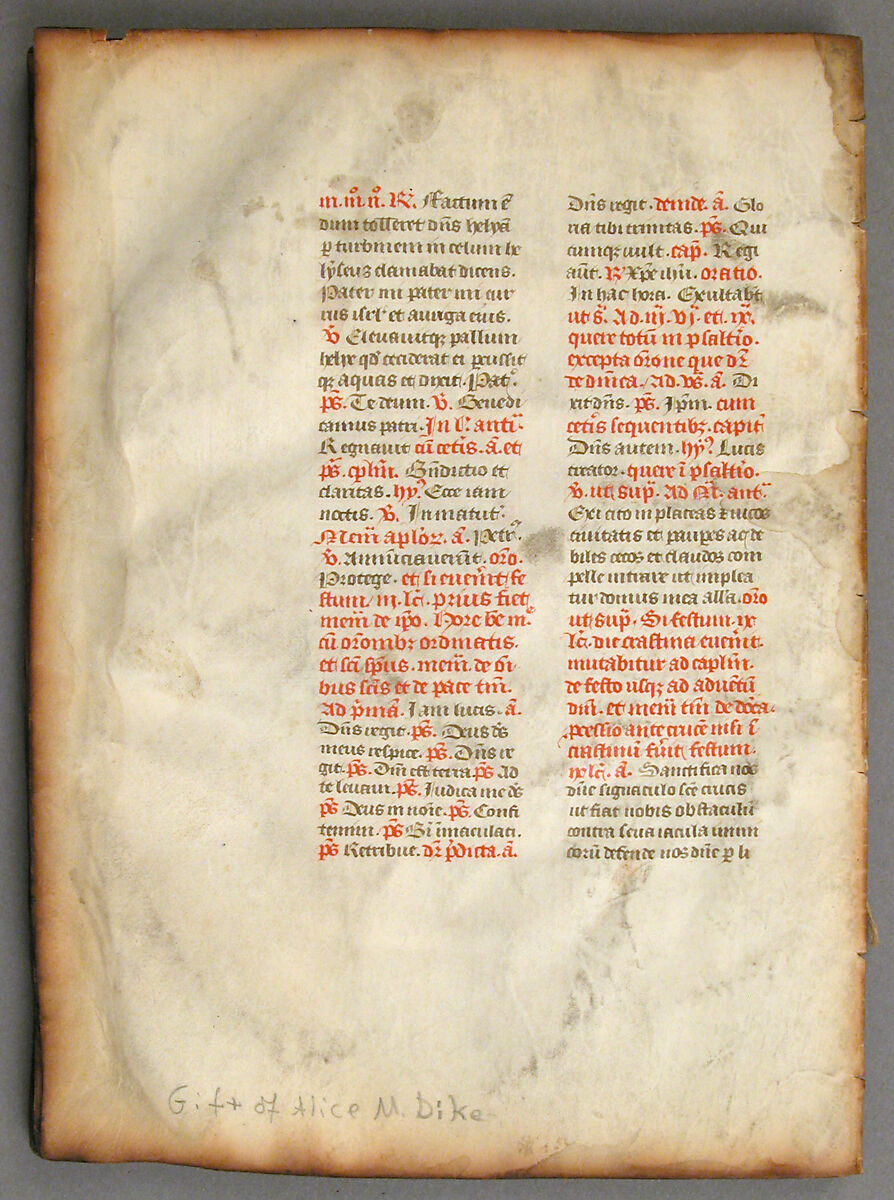 m. ıııͦ. nͦ. R̃. Factum ẽ
dum tolleret dñs helyã
p̲ turbinem in celum he
lyseus clamabat dicens.
Pater mi pater mi cur
rus isrl̃ et auriga eius.
V̾ Eleuauitqꝫ pallium
helye qd̾ ceciderat ei p̲cussit
qꝫ aquas et dixit. Pat̾.
p̃s. Te deum. V̾. Benedi
camus patri. In l' anti.
Regnauit cũ cetis. a. et
p̃s. cp̃lm̃. Bñdictio et
claritas. hy̾. Ecce iam
noctis. V̾. In matut̾.
Mem̃ aplo̾ꝝ. ã. Petr̾.
V̾. Annũciauerũt. or̃o.
Protege. et si euen̾it fe
stum. iıı. lc̃. prius fiet
mem̃ de ip̃o. Hore bẽ m̾.
cũ or̃onibꝫ ordinatis.
et scĩ sp̃us. mem̃. de oi
bus scĩs et de pace tm̃.
Ad p̾mã. Iam lucis. ã.
Dñs regit. p̃s. Deus ds̾
meus respice. p̃s. Dñs re
git. p̃s. Dñi est terra. p̃s Ad
te leuaui. p̃s. Iudica me ds̾
p̃s Deus in noĩe. p̃s. Confi
temini. p̃s Bĩ ĩmaculati.
p̃s Retribue. dr̃ p̾dicta. ã.
Dñs regit. deinde. ã. Glo
ria tibi trinitas. p̃s. Qui
cumqꝫ uult. cap̃. Regi
aũt. R̾ Xp̃e ihũ. oratio.
In hac hora. Exultab̃t
ut s̾. Ad. iij. vj. et. ix.
quere totũ in psalt̾io.
excepta or̃one que dr̃
de dñica. Ad. vs̃. ã. Di
xit dñs. p̃s. Ip̃m. cum
cet̾is sequentibꝫ. capit̾
Dñs autem. hy̾. Lucis
creator. quere ĩ psalt̾io.
V̾. ut sup̃. Ad M̃. ant̾.
Exi cito in plateas ⁊ uicos
ciuitatis et paup̲es ac de
biles cecos et claudos com
pelle intrare ut implea
tur domus mea alla. or̃o
ut sup̃. Si festum. ix
lc̃. die crastina euen̾it.
mutabitur ad caplm̃.
de festo usqꝫ ad aduentũ
dñi. et mem̃ tm̃ de dñca.
pcessio ante crucẽ nisi ĩ
crastinũ fũit festum.
ix lc̃. ã. Sanctifica nos
dñe signaculo scẽ crucis
ut fiat nobis obstaculũ
contra seua iacula inimi
corũ defende nos dñe p̲ li
Gift of Alice M. Dike